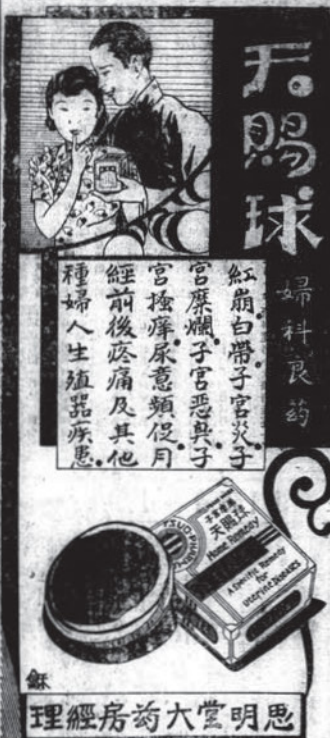 天賜球
婦科良药
紅崩白帶子宮炎子
宮糜爛子宮惡臭子
宮搔痒尿意頻促月
經前後疼痛及其他
種婦人生殖器疾患
天賜球
Home Remedy
A Specific Remedy
for
Uterine Diseases
穌
理經房药大堂明思